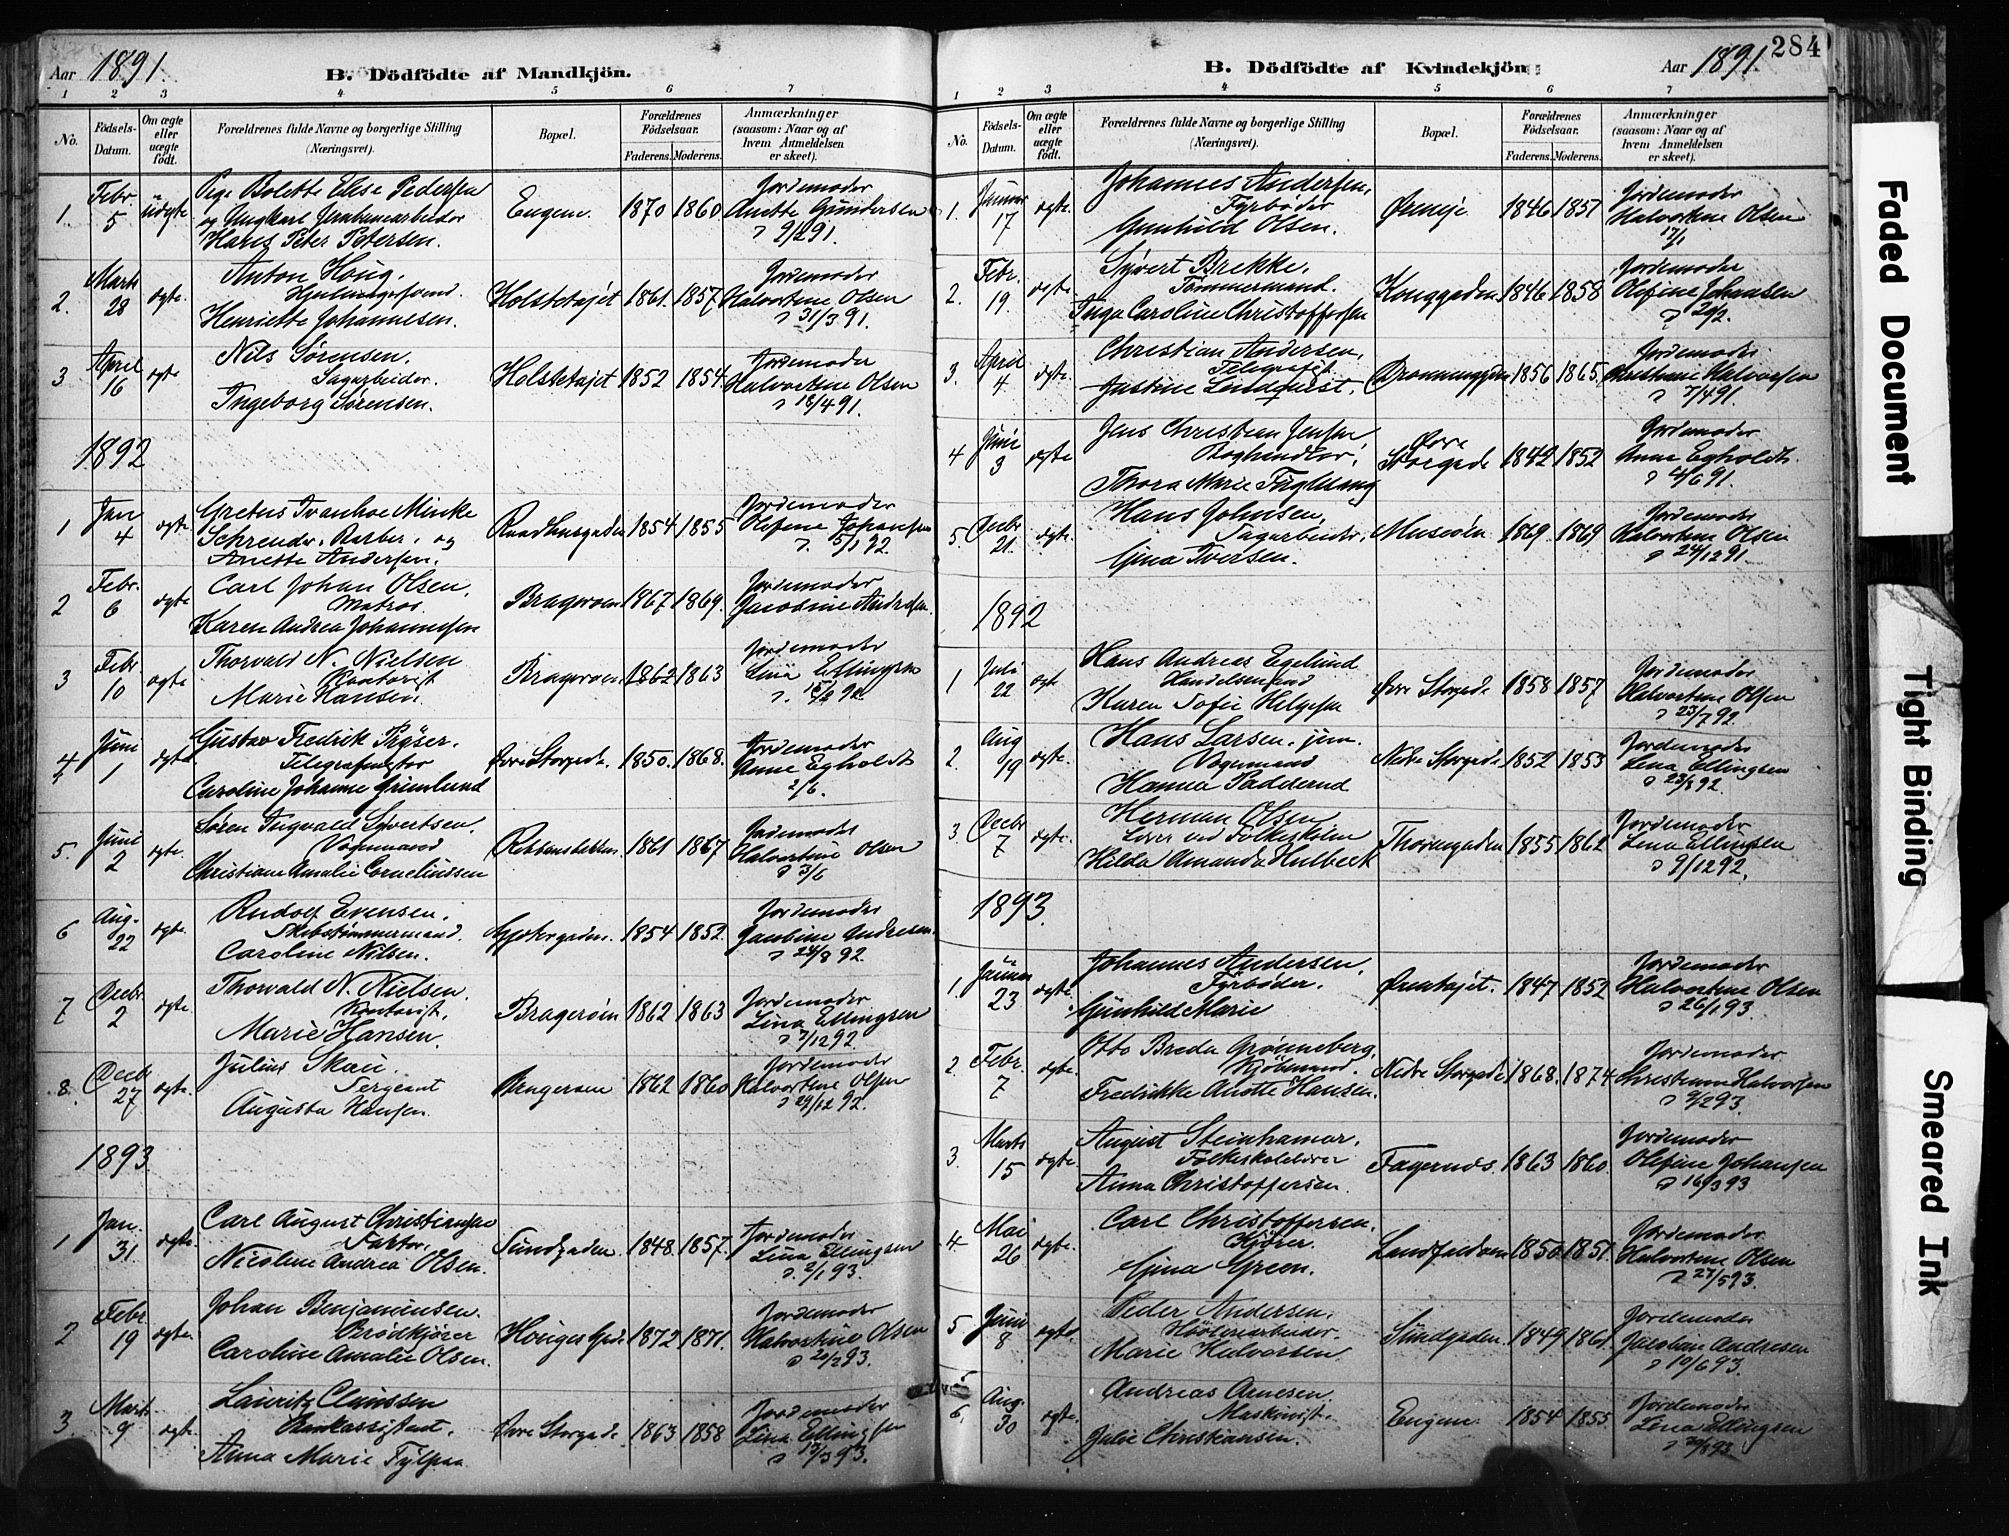 Aar 1891.
B. Dödfödte af Mandkjön.
1 2 3 4 5 6 7
No.
Födsels-Datum.
Om ægte eller uægte födt.
Forældrenes fulde Navne og borgerlige Stilling (Næringsvei).
Bopæl.
Forældrenes Födselsaar.
Faderens. Moderens.
Anmærkninger (saasom: Naar og af hvem Anmeldelsen er skeet).
1. Febr. 5 uægte Pige Bolette Elise Pedersen
og Ungkarl Jernbanearbeider
Hans Peter Petersen.
Engene. 1870 1860
Jordemoder
Anette Gundersen
9/2 91.
2. Marts 28 ægte. Anton Houg.
Henriette Johannesen.
Holstetøjet 1861. 1857.
Jordemoder
Halvortine Olsen
31/3 91.
3 April 16 ægte Nils Sørensen.
Sagarbeider.
Ingeborg Sørensen.
Holstetøjet 1852 1854.
Jordemoder
Halvortine Olsen
18/4 91.
1892
1 Jan 4 ægte Gretus Ivanhoe Mincke
Schreuder. Barber. og
Anette Andersen.
Raadhusgaden 1854 1855
Jordemoder
Olefine Johansen
5/1 92.
2 Febr. 6 ægte Carl Johan Olsen.
Matros.
Karen Andrea Johannessen
Bragerøen 1867 1869.
Jordemoder
Jacobine Andresen.
3 Febr. 10 ægte Thorvald N. Nielsen
Kontorist
Marie Hansen.
Bragerøen 1862 1863
Jordemoder
Lina Ellingsen
4 Juni 1 ægte Gustav Fredrik Prøser.
Caroline Johanne Grimlund
Øvre Storgade. 1850. 1868.
Jordemoder
Anne Egholdt
2/6.
5. Juni 2 ægte. Søren Ingvald Syvertsen.
Vognmand
Christiane Amalie Corneliussen
1861 1867
Jordemoder
Halvortine Olsen
3/6
6 Aug. 22 ægte. Rudolf Evensen.
Skibstømmermand.
Caroline Nilsen.
1854 1852.
Jordemoder
Jacobine Andresen.
24/8 92.
7 Decbr. 2 ægte. Thorvald N. Nielsen.
Kontorist.
Marie Hansen.
Bragerøen 1862 1863
Jordemoder
Lina Ellingsen
7/12 92.
8. Decbr. 27 ægte. Julius Skau.
Sergeant
Augusta Hansen.
Bragerøen 1862 1860
Jordemoder
Halvortine Olsen
29/12 92.
1893
1 Jan. 31. ægte. Carl August Christiansen
Faktor.
Nicoline Andrea Olsen.
Sundgaden. 1848. 1857.
Jordemoder
Lina Ellingsen
2/1 93.
2 Febr 19 ægte. Johan Benjaminsen.
Brødkjører
Caroline Amalie Olsen.
Houges Gade 1872 1871.
Jordemoder
Halvortine Olsen
20/2 93.
3. Marts 9 ægte. Lauritz Claussen
Bankassistent.
Anna Marie
Øvre Storgade 1863 1858
Jordemoder
Lina Ellingsen
13/3 93.
B. Dödfödte af Kvindekjön.
Aar 1891.
284
1 2 3 4 5 6 7
No.
Födsels-Datum.
Om ægte eller uægte födt.
Forældrenes fulde Navne og borgerlige Stilling (Næringsvei).
Bopæl.
Forældrenes Födselsaar.
Faderens. Moderens.
Anmærkninger (saasom: Naar og af hvem Anmeldelsen er skeet).
1. Januar 17 ægte. Johannes Andersen.
Fyrbøder
Gunhild Olsen.
1846 1851
Jordemoder
Halvortine Olsen
17/1
2. Febr. 19. ægte. Syvert Brekke.
Tømmermand.
Inga Caroline Christoffersen
Konggaden 1846 1858
Jordemoder
Olefine Johansen
20/2.
3. April 4 ægte. Christian Andersen,
Telegrafist
Justine Lindquist.
Dronninggaden 1856 1865.
Jordemoder
Christiane Halvorsen
7/4 91.
4 Juni 3 ægte Jens Christian Jensen
Boghandler.
Thora Marie Fuglesang
Øvre Storgade 1842 1852
Jordemoder
Anne Egholdt.
4/6 91.
5. Decbr 21. ægte. Hans Johnsen,
Sagarbeider.
Gina Iversen.
Museøen 1869. 1869.
Jordemoder
Halvortine Olsen
24/12 91.
1892
1 Juli 22 ægte Hans Andreas Egelund
Handelsmand
Karen Sofie Helgesen
Øvre Storgade 1858 1857
Jordemoder
Halvortine Olsen
23/7 92.
2. Aug 19 ægte. Hans Larsen. jun.
Vognmand
Hanna Paddernd
Nedre Storgade 1852 1853
Jordemoder
Lena Ellingsen
23/8 92.
3 Decbr 7 ægte. Herman Olsen
Lærer ved Folkeskolen
Hilda Amanda Hulbeck
Thornegaden 1855 1862
Jordemoder
Lena Ellingsen
9/12 92.
1893.
1. Januar 23 ægte. Johannes Andersen.
Fyrbøder.
Gunhild Marie
Ørentøjet. 1847 1852
Jordemoder
Halvortine Olsen
26/1 93.
2. Febr. 7 ægte. Otto Breda Grønneberg,
Kjøbmand.
Fredrikke Anette Hansen.
Nedre Storgade 1868. 1874
Jordemoder
Christiane Halvorsen
9/2 93.
3. Marts 15 ægte. August Steinhamar.
Folkeskolelærer
Anna Christoffersen.
Fagernæs. 1863 1860
Jordemoder
Olefine Johansen
16/3 93
4 Mai 26 ægte. Carl Christoffersen.
Kjører.
Gina Green.
Landfaldøen 1850. 1851.
Jordemoder
Halvortine Olsen
27/5 93.
5 Juni 8 ægte Peder Andersen,
Høvleriarbeider.
Marie Halvorsen.
Sundgaden. 1849. 1861.
Jordemoder
Jacobine Andresen
10/6 93.
6. Aug. 30 ægte. Andreas Arnesen
Maskinist.
Julie Christiansen.
Engene. 1854 1855
Jordemoder
Lina Ellingsen
Faded Document
Tight Binding
Smeared Ink